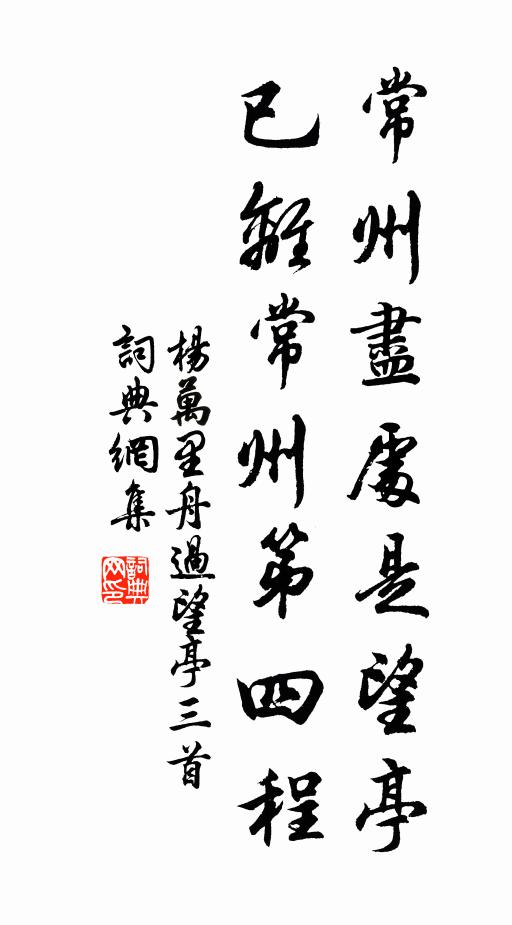 常州盡處是望亭
已離常州第四程
楊萬里舟過望亭三首
詞典網集
詞典網印